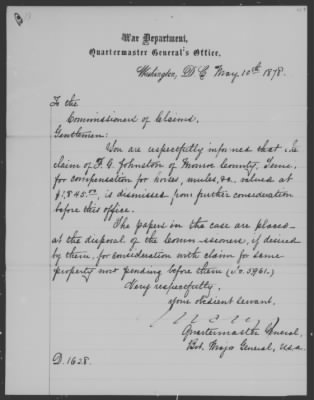 War Department,
Quartermaster General's Office,
Washington, D.C. May 10th 1878.
To the
Commissioners of Claims,
Gentlemen:
You are respectfully informed that the
claim of F. G. Johnston of Monroe County, Tenn.
for compensation for horses, mules, &c. valued at
$1,845.00, is dismissed from further consideration
before this office.
The papers in the case are placed
at the disposal of the Commissioners, if desired
by them, for consideration with claim for same
property now pending before them (No. 5961.)
Very respectfully,
Your obedient servant.
Quartermaster General,
Bvt. Major General, U.S.A.
D. 1628.